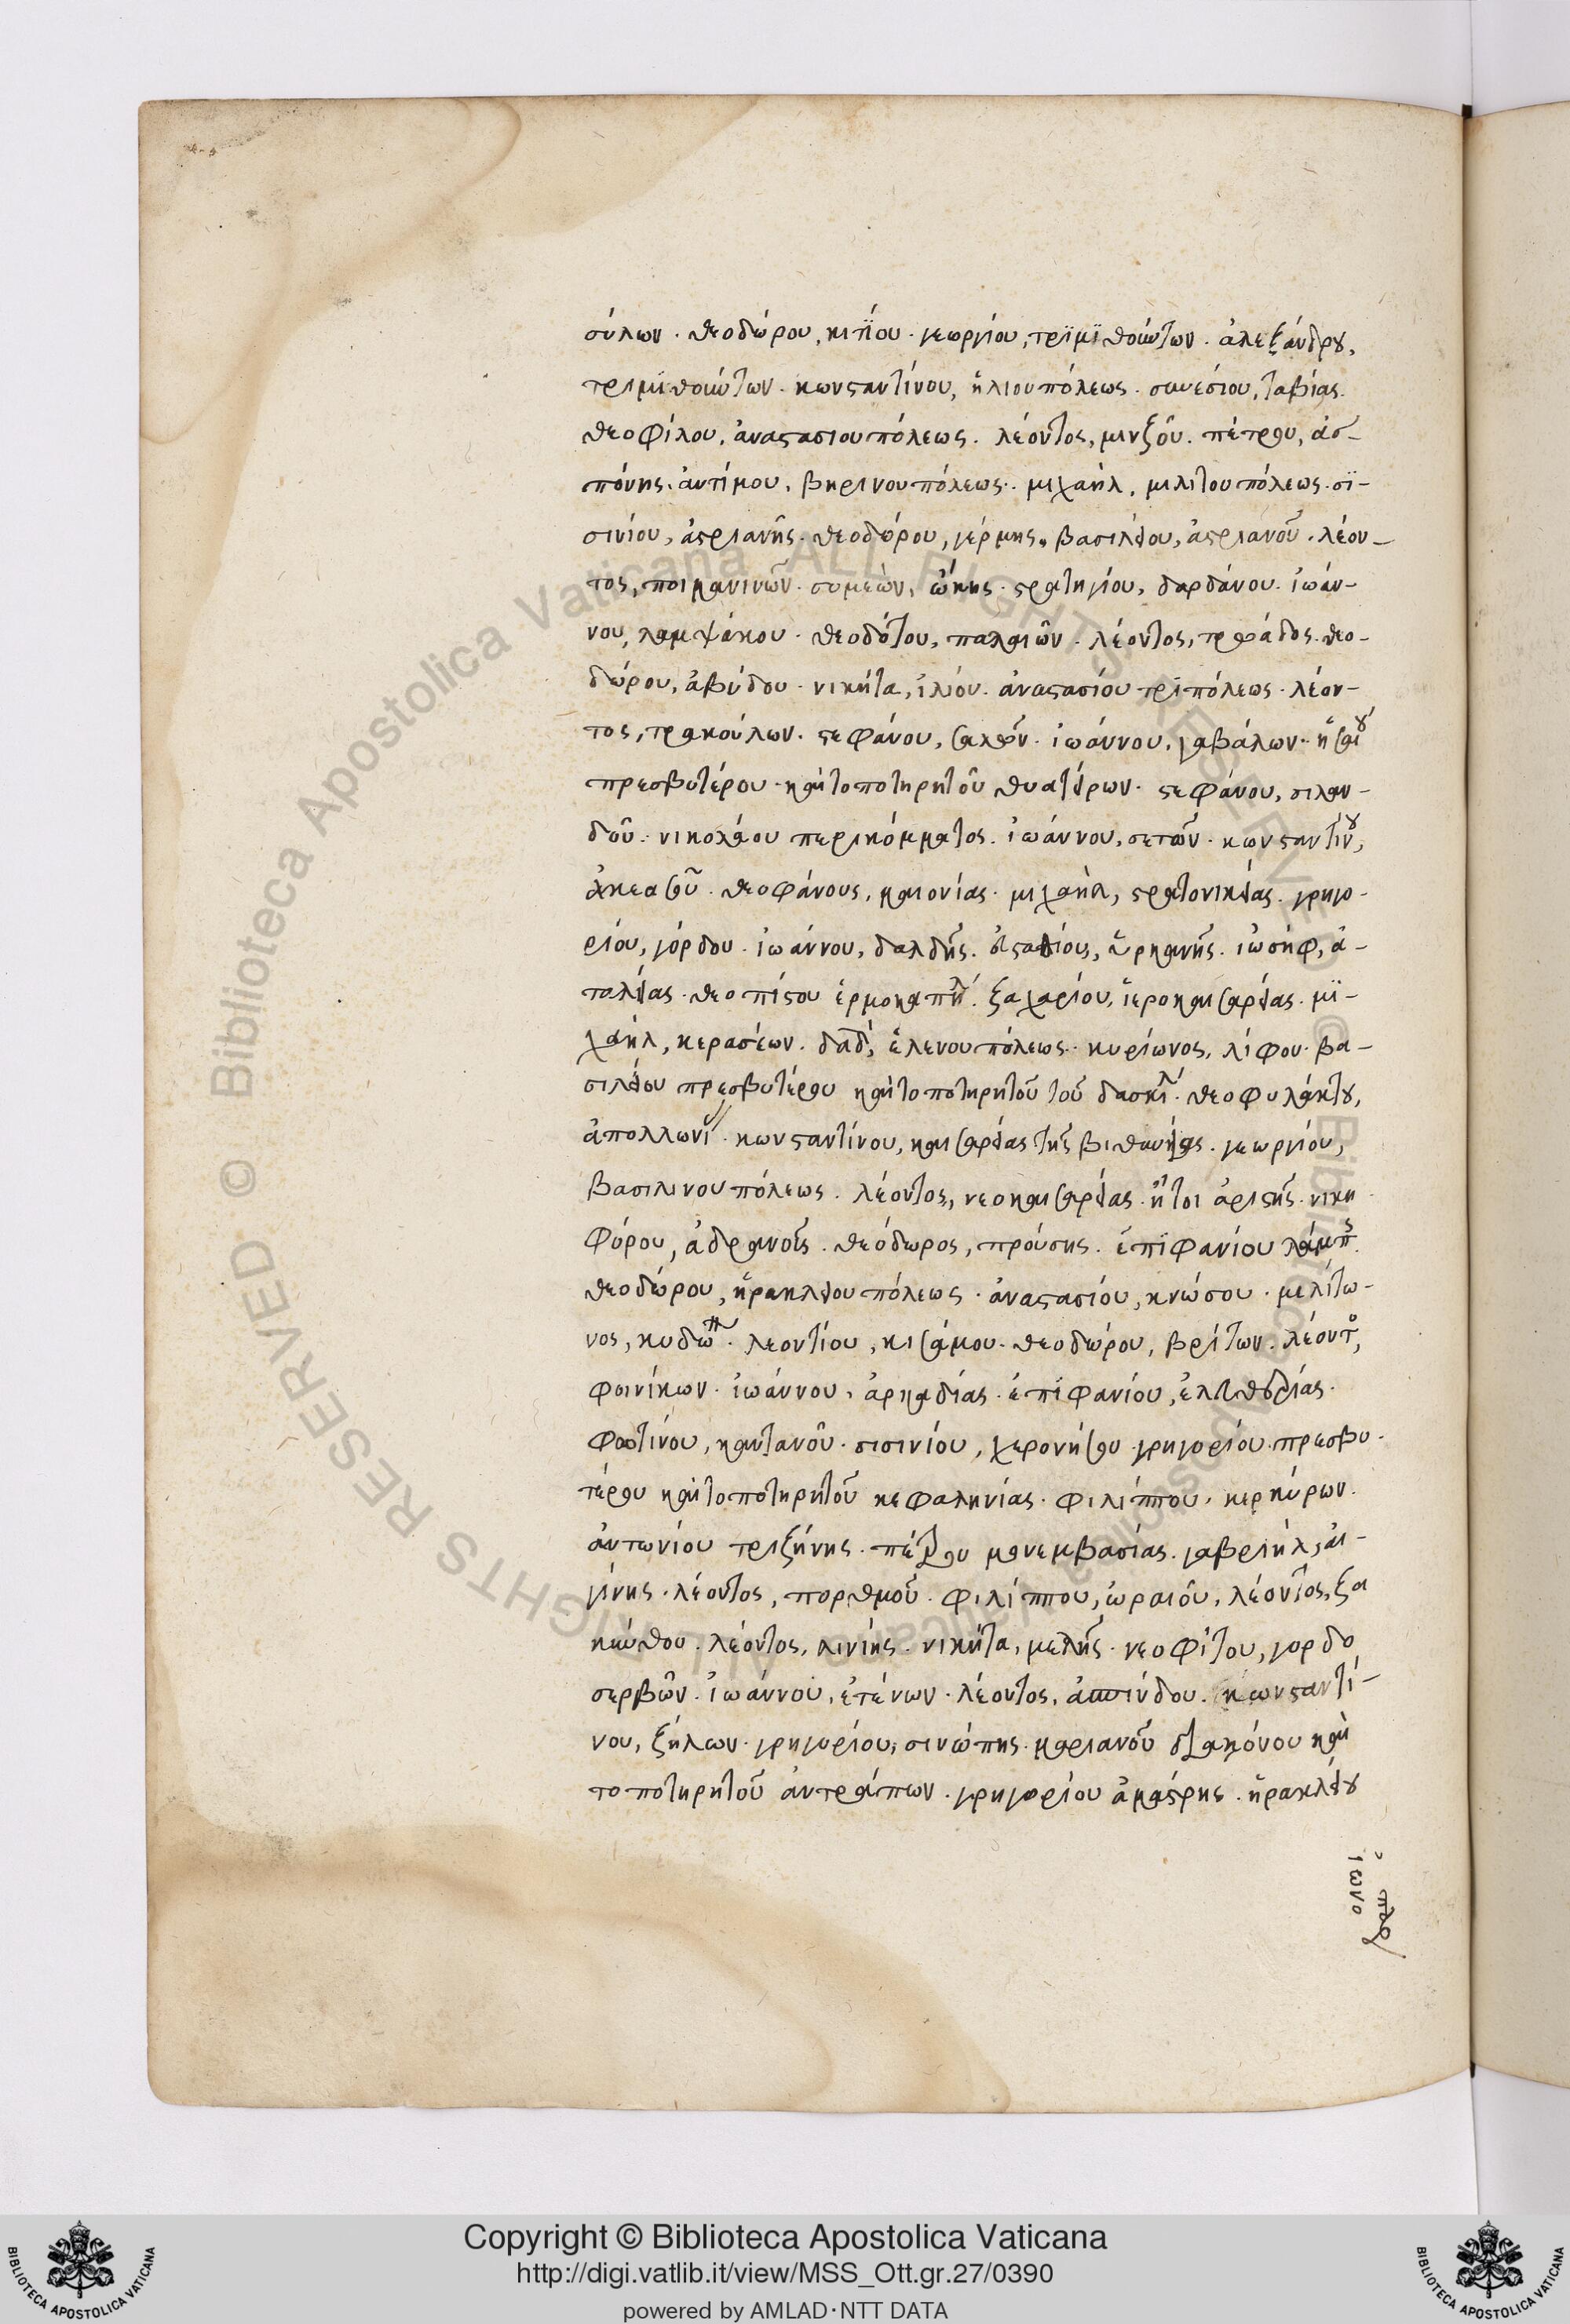 σύλων. θεοδώρου, κιτίου. γεωργίου, τριμιθούντων. ἀλεξάνδρου,
τριμιθούντων. κωνσταντίνου, ἡλιουπόλεως. συνεσίου, ταβίας.
θεοφίλου, ἀναστασιουπόλεως. λέοντος, μινζοῦ. πέτρου, ἀσ-
πόνης. ἀντίμου, βηρινουπόλεως. μιχαὴλ, μιλιτουπόλεως. σϊ-
σινίου, ἀδριανῆς. θεοδώρου, γέρμης. βασιλείου, ἀδριανοῦ. λέον-
τος, ποιμανινῶν. συμεὼν, ὤκης. στρατηγίου, δαρδάνου. ἰωάν-
νου, λαμψάκου. θεοδότου, παλαιῶν. λέοντος, τρωάδος. θεο-
δώρου, ἀβύδου. νικήτα, ἰλίου. ἀναστασίου τρϊπόλεως. λέον-
τος, τρακούλων. στεφάνου, σαλῶν. ἰωάννου, γαβάλων. ἡσαΐου
πρεσβυτέρου καὶ τοποτηρητοῦ θυατείρων. στεφάνου, σιλαν-
δοῦ. νικολάου περικόμματος. ἰωάννου, σετῶν. κωνσταντίνου,
ἀκεασοῦ. θεοφάνους, μαιονίας. μιχαὴλ, στρατονικείας. γρηγο-
ρίου, γόρδου. ἰωάννου, δαλδῆς. εὐσταθίου, ὑρκανῆς. ἰωσήφ, ἀ-
ταλείας. θεοπίστου ἑρμοκαπηλ. ζαχαρίου, ἱεροκαισαρείας. μϊ-
χαὴλ, κερασέων. δαδ, ἑλενουπόλεως. κυρίωνος, λίφου. βα-
σιλείου πρεσβυτέρου καὶ τοποτηρητοῦ τοῦ δασκυλ. θεοφυλάκτου,
ἀπολλωνι. κωνσταντίνου, καισαρείας τῆς βιθυνίας. γεωργίου,
βασιλινουπόλεως. λέοντος, νεοκαισαρείας ἤτοι ἀριστῆς. νικη
φόρου, ἀδρανοίς. θεόδωρος, προύσης. ἐπϊφανίου λάμπης.
θεοδώρου, ἡρακλειουπόλεως. ἀναστασίου, κνώσου. μελίτω-
νος, κυδων. λεοντίου, κισάμου. θεοδώρου, βρίτων. λέοντος,
φοινίκων. ἰωάννου, ἀρκαδίας. ἐπϊφανίου, ἐλευθερίας.
φωτίνου, καντανοῦ. σισινίου, χερονήσου. γρηγορίου πρεσβυ-
τέρου καὶ τοποτηρητοῦ κεφαληνίας. φιλίππου, κερκύρων.
ἀντωνίου τριζήνης. πέτρου μονεμβασίας. γαβριὴλ, αἰ-
γίνης. λέοντος, πορθμοῦ. φιλίππου, ὡραιοῦ. λέοντος, ζα
κύνθου. λέοντος, λινίης. νικήτα, μελῆς. νεοφίτου, γορδο
σερβῶν. ἰωάννου, ἐτένων. λέοντος, ἀσπίνδου. κωνσταντί-
νου, ζήλων. γρηγορίου, σινώπης. μαριανοῦ διακόνου καὶ
τοποτηρητοῦ ἀντράπων. γρηγορίου ἀμάστρης. ἡρακλείου